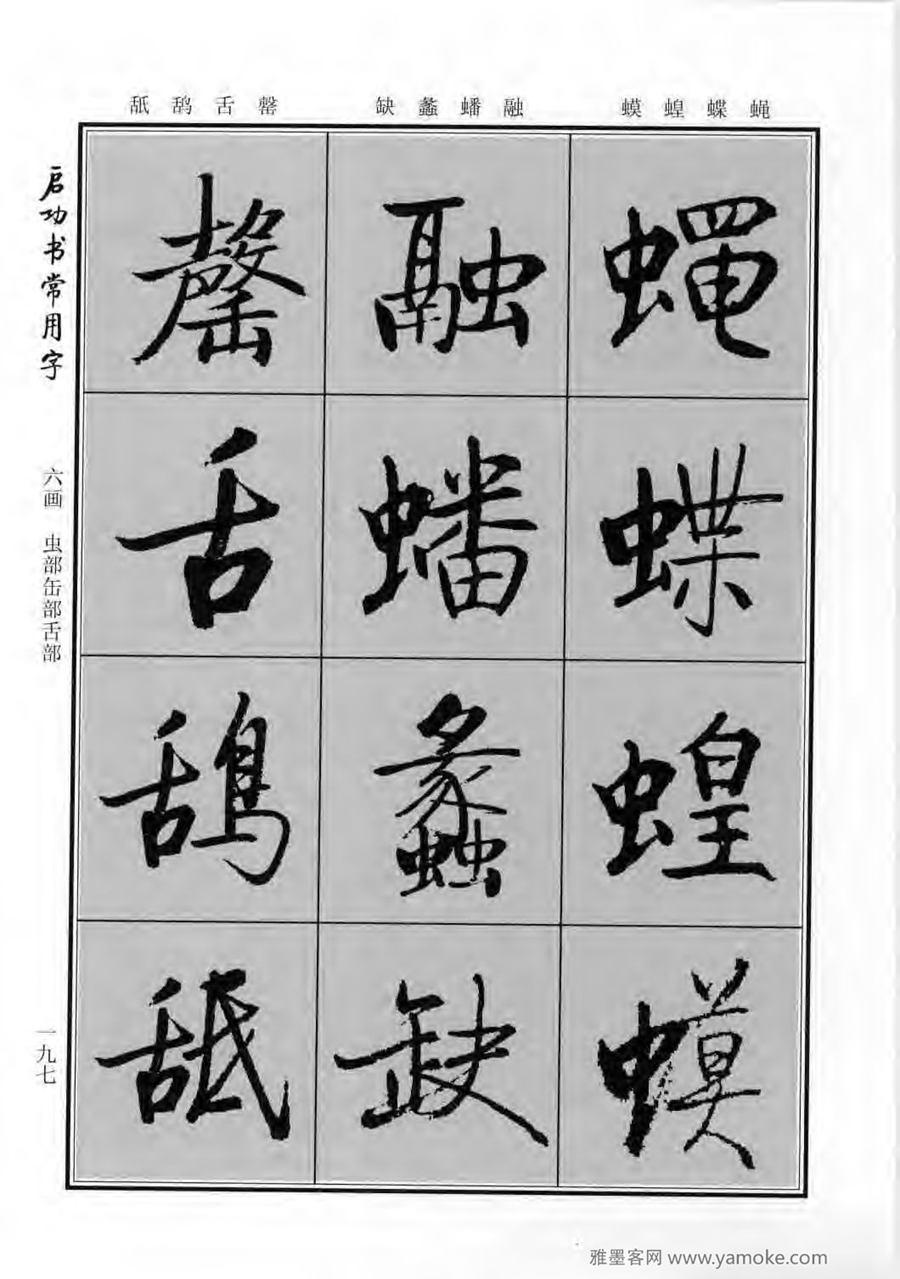 蝇 蝶 蝗 蟆 融 蟠 蠡 缺 罄 舌 鸹 舐
蝇 蝶 蝗 蟆
融 蟠 蠡 缺
罄 舌 鴰 舐
启功书常用字
六画 虫部缶部舌部
一九七
雅墨客网 www.yamoke.com